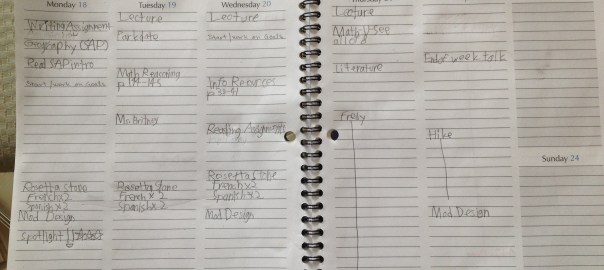 Monday 18
Writing Assignment
Geography (SAP)
Read SAP intro
Start/work on Goals
Rosetta Stone
French x2
Spanish x2
Mod Design
Spotlight
Tuesday 19
Lecture
Math Reasoning
p 144-145
Rosetta Stone
French x 2
Spanish x 2
Mod Design
Wednesday 20
Lecture
Start/work on Goals
Info Resources
Reading Assignments
Rosetta Stone
French x2
Spanish x2
Mod Design
Lecture
Math U See
Literature
End of week talk
Hike
Mod Design
Sunday 24